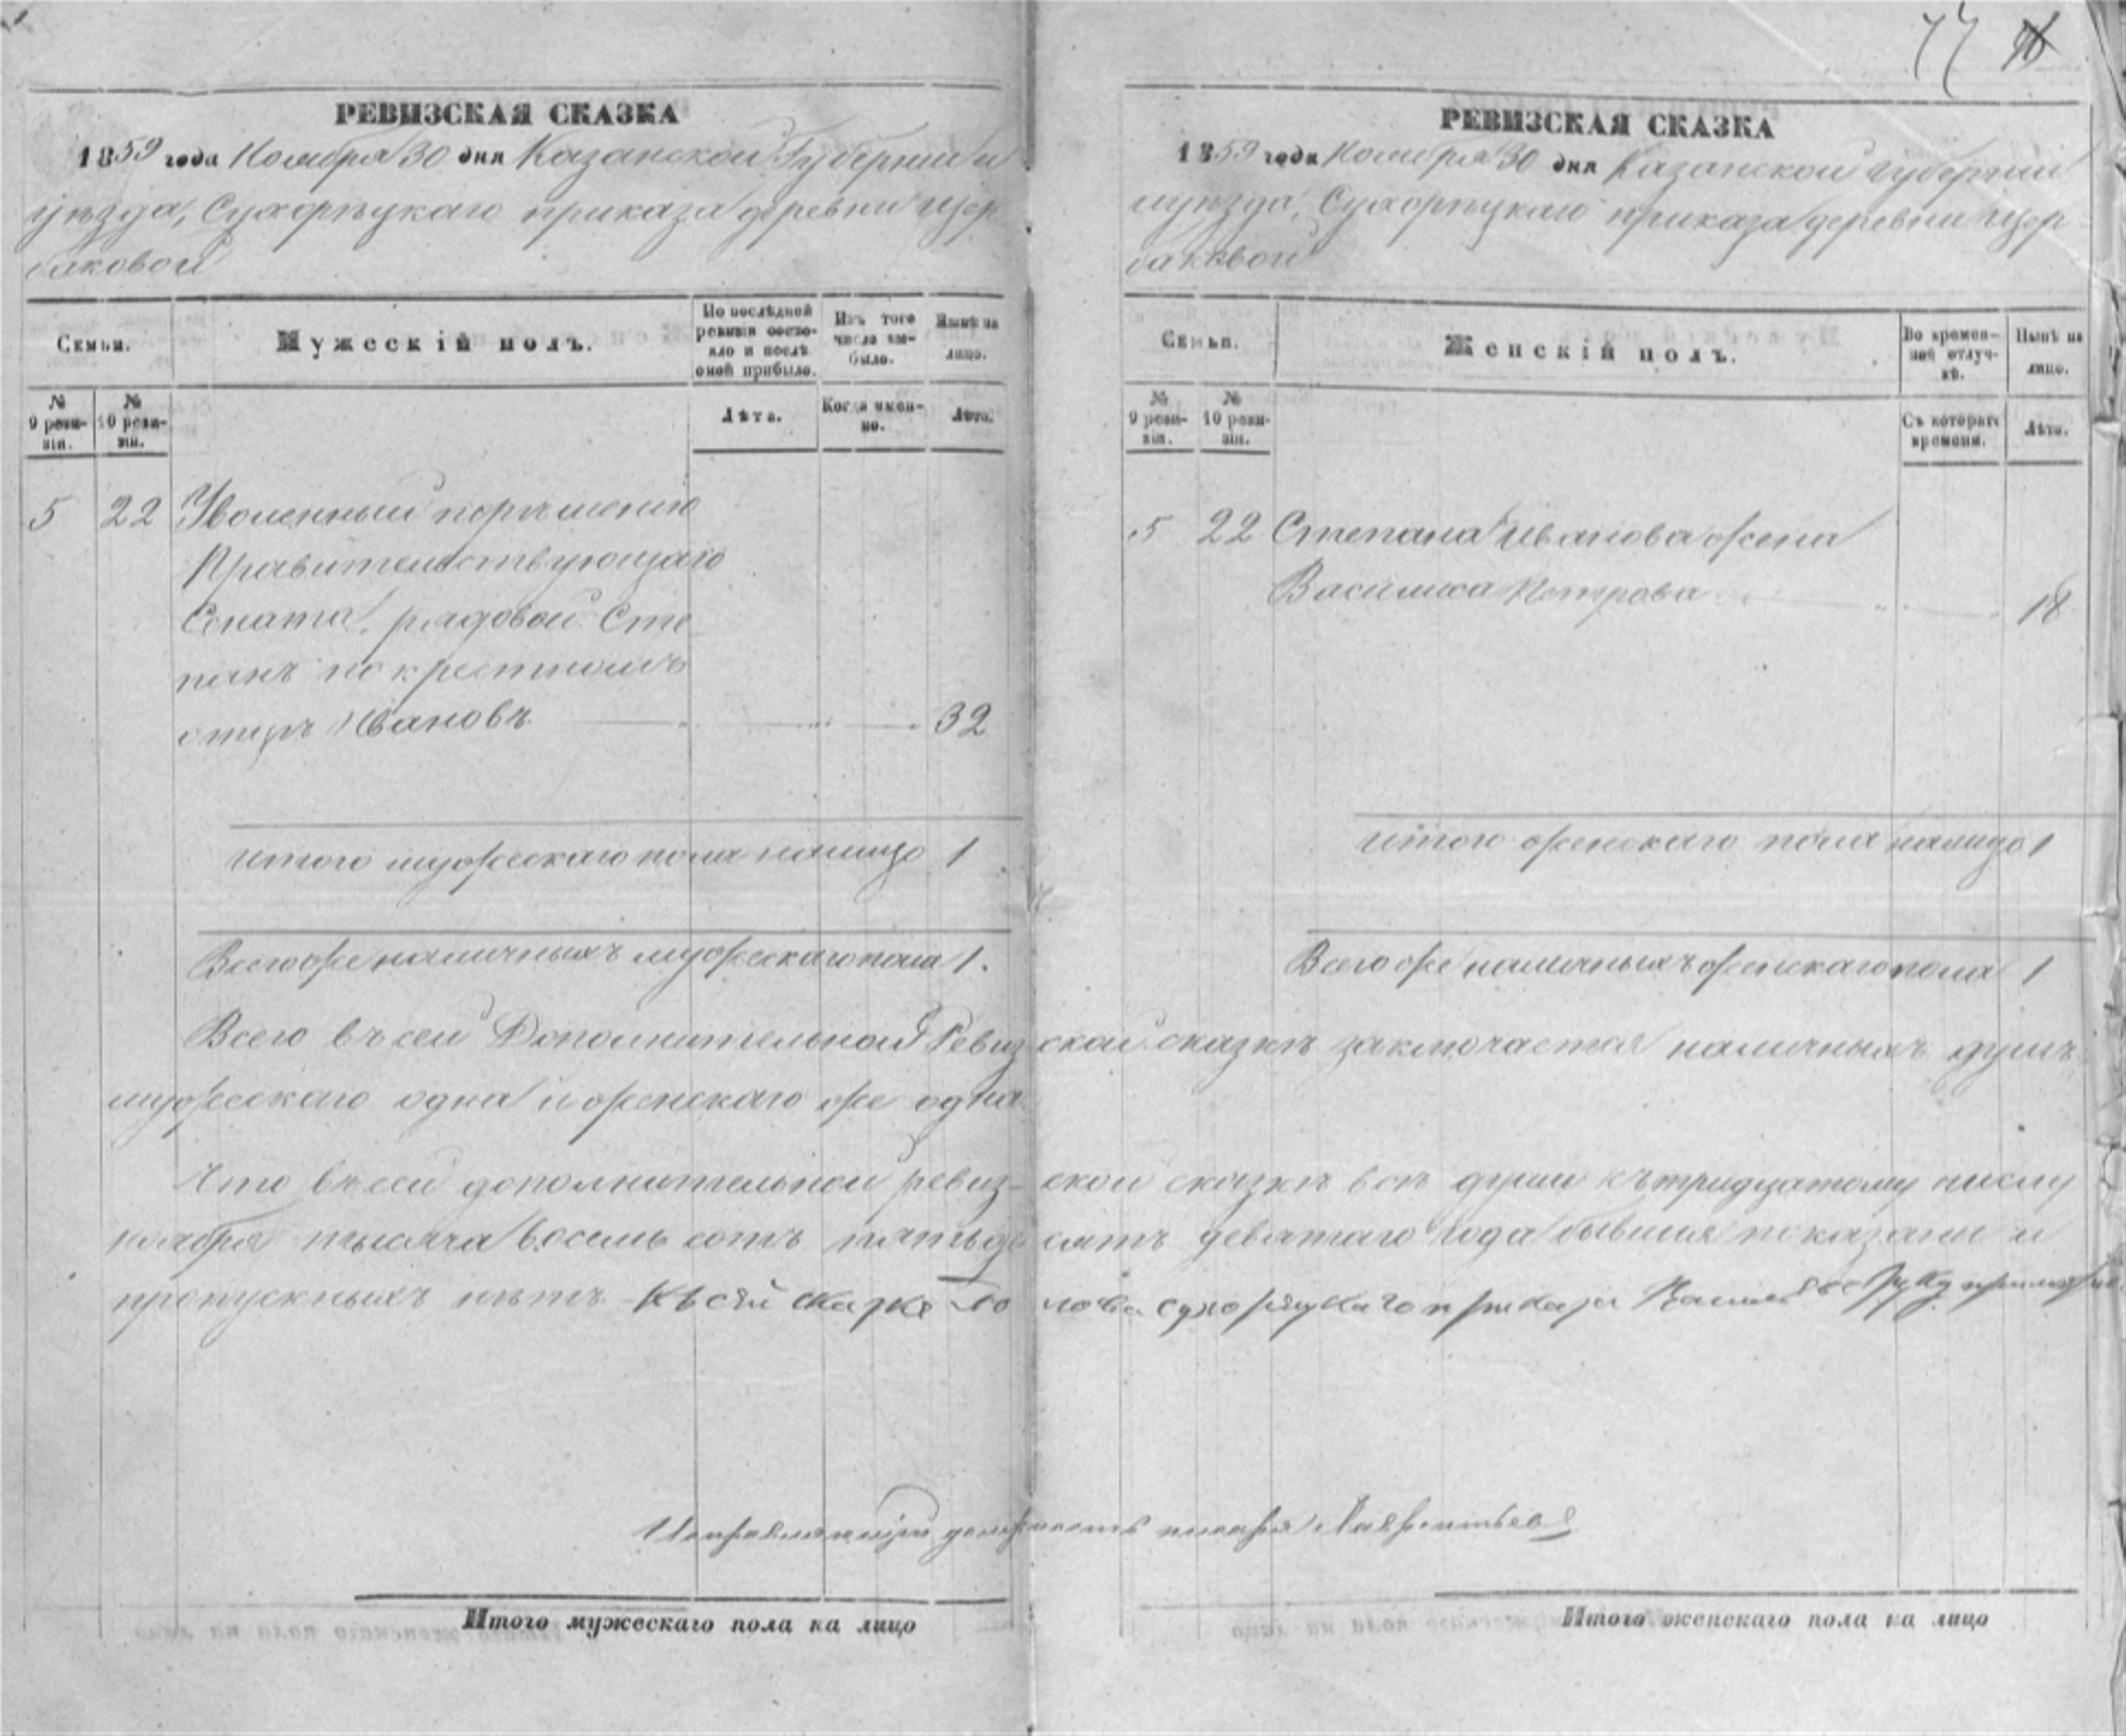 77
РЕВИЗСКАЯ СКАЗКА
1859 года Ноября 30 дня Казанской Губерніи и
уѣзда, Сухорѣцкаго приказа деревни Щер
баковой
Семьи.
Мужескій полъ.
По послѣдней ревизіи состояло и послѣ оной прибыло.
Изъ того числа выбыло.
Нынѣ на лицо.
№ 9 ревизіи.
№ 10 ревизіи.
Лѣта.
Когда именно.
Лѣта.
5 22 Уволенный по рѣшенію
Правительствующаго
Сената, рядовой Сте
панъ по крестномъ
отцѣ Ивановъ 32
Итого мужескаго пола налицо 1
Всего же наличныхъ мужескаго пола 1.
РЕВИЗСКАЯ СКАЗКА
1859 года Ноября 30 дня Казанской губерніи
и уѣзда, Сухорѣцкаго приказа деревни Щер
баковой
Семьи.
Женскій полъ.
Во временной отлучкѣ.
Нынѣ на лицо.
№ 9 ревизіи.
№ 10 ревизіи.
Съ котораго времени.
Лѣта.
5 22 Степана Иванова жена
Василиса Петрова 18
Итого женскаго пола налицо 1
Всего же наличныхъ женскаго пола 1
Всего въ сей Дополнительной Ревизской сказкѣ заключается наличныхъ душъ
мужескаго одна и женскаго же одна
Что въ сей дополнительной ревиз-ской сказкѣ всѣ души къ тридцатому числу
ноября тысяча восемь сотъ пятьдесятъ девятаго года бывшія показаны и
пропускныхъ нѣтъ Къ сей скаске Голова сухорѣцкаго приказа руку приложилъ
Исправляющій должность писаря Лаврентьевъ
Итого мужескаго пола на лицо
Итого женскаго пола на лицо